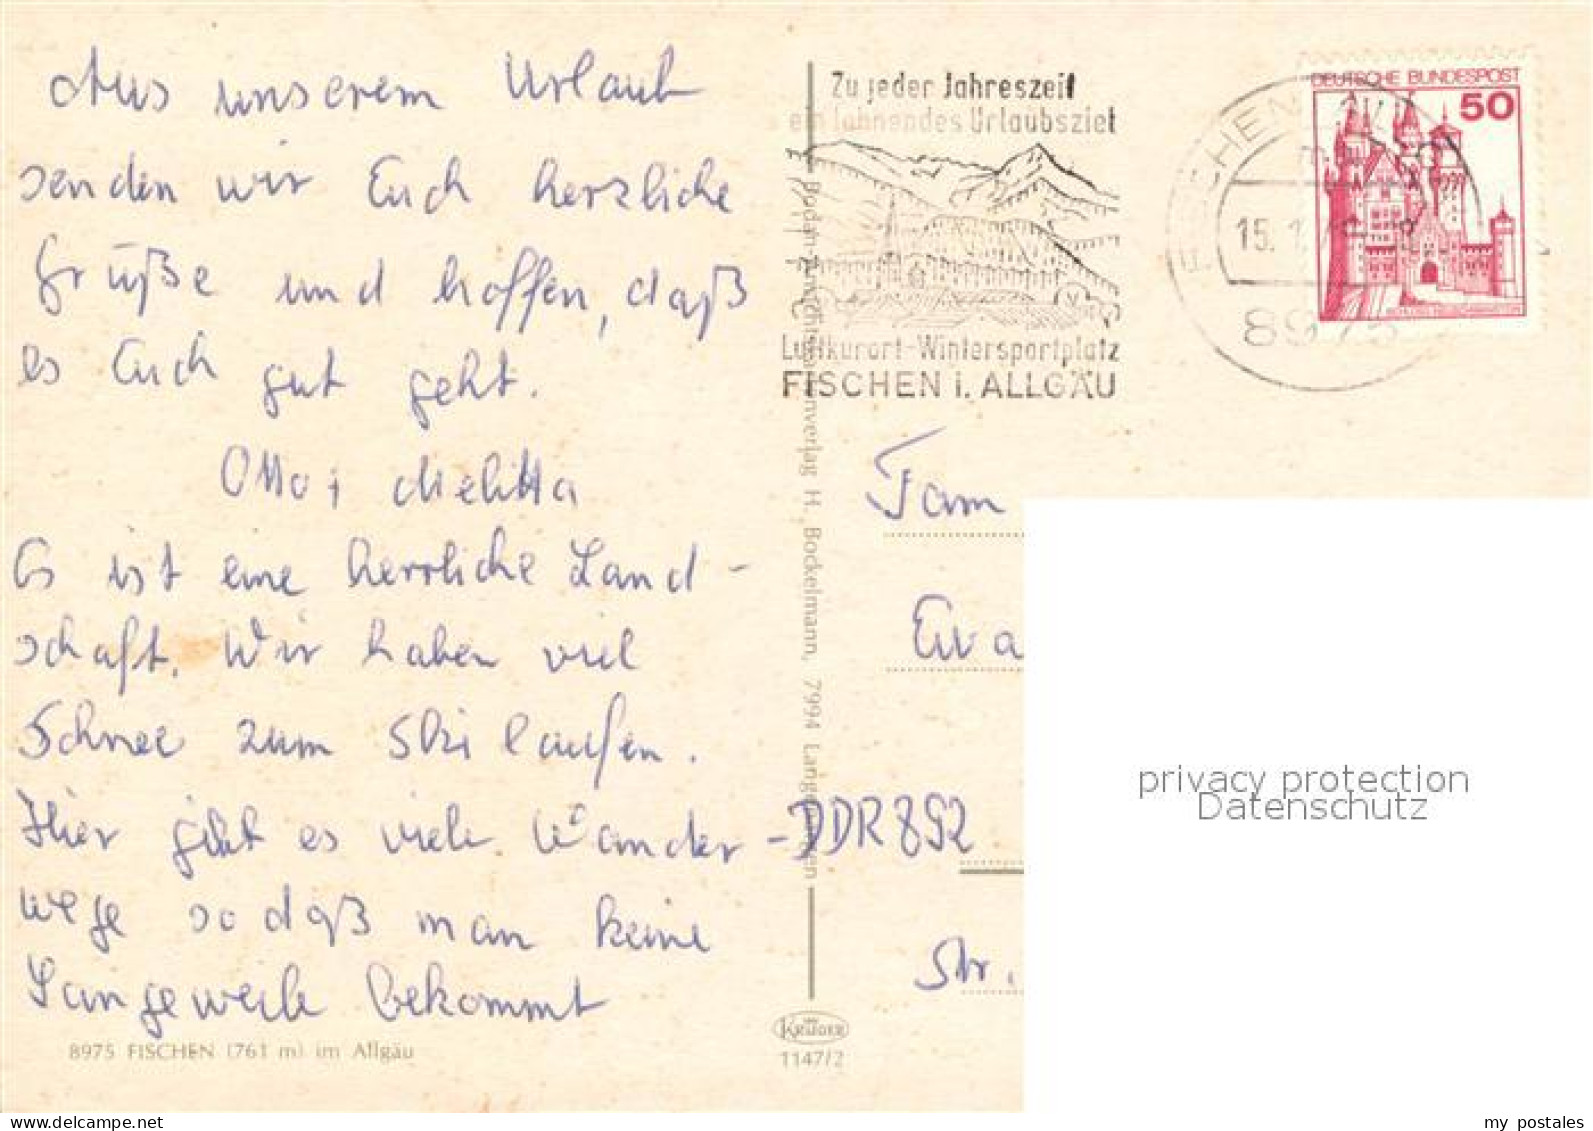 Aus unserem Urlaub
senden wir Euch herzliche
Grüße und hoffen, daß
es Euch gut geht.
Otto i Melitta
Es ist eine herrliche Land-
schaft. Wir haben viel
Schnee zum Ski laufen.
Hier gibt es viele Wander-
wege so daß man keine
Langeweile bekommt
8975 FISCHEN (761 m) im Allgäu
Zu jeder Jahreszeit
ein lohnendes Urlaubsziel
Luftkurort-Wintersportplatz
FISCHEN i. ALLGÄU
FISCHEN
15.1
8975
DEUTSCHE BUNDESPOST
50
verlag H. Bockelmann, 7994 Langenargen
KRÜGER
1147/2
Fam
Eva
DDR 892
Str.
privacy protection
Datenschutz
delcampe.net
my_postales